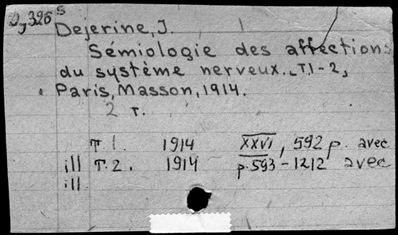 Dejerine, J.
Sémiologie des affections
du système nerveux. T. 1-2,
Paris, Masson, 1914.
2 т.
T. 1. 1914 XXVI, 592 p. avec
ill T. 2. 1914 p. 593-1212 avec
ill.